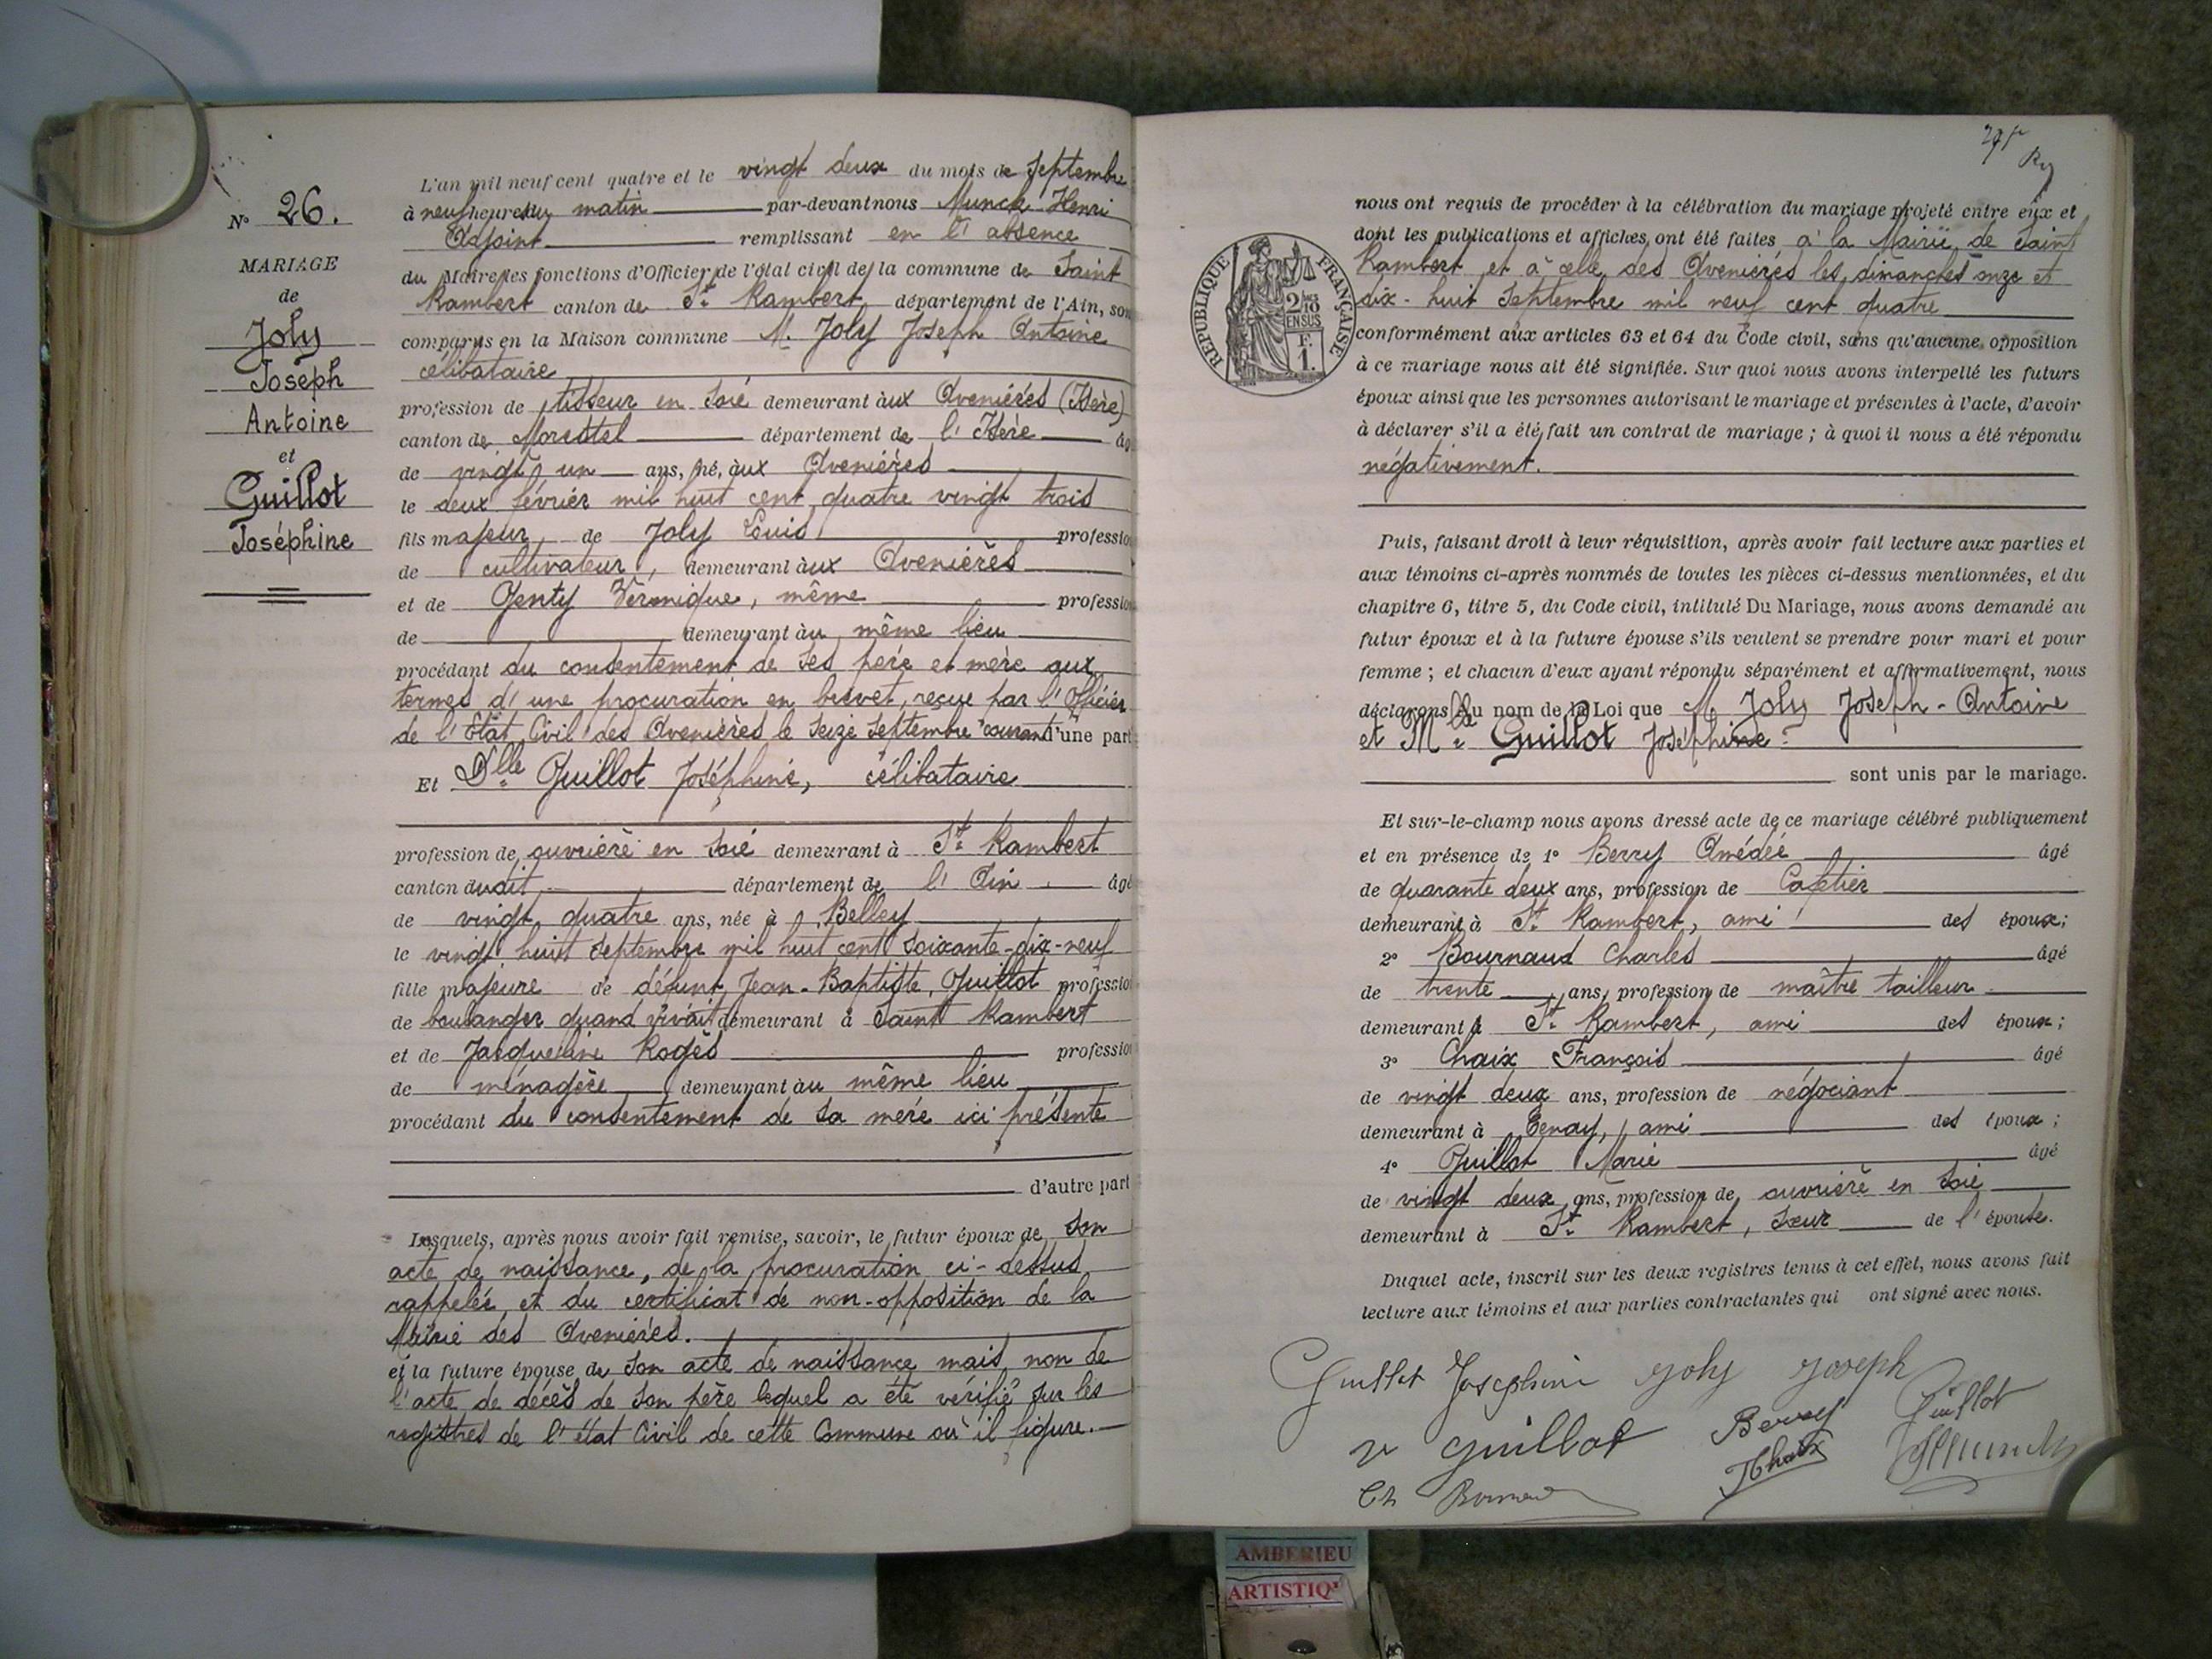 N° 26.
MARIAGE
de
Joly
Joseph
Antoine
et
Guillot
Joséphine
L'an mil neuf cent quatre et le vingt deux du mois de Septembre
à neuf heures du matin par-devant nous Munck Henri
Adjoint remplissant en l' absence
du Maire les fonctions d'Officier de l'état civil de la commune de Saint
Rambert canton de St Rambert, département de l'Ain, son
comparus en la Maison commune M. Joly Joseph Antoine
célibataire
profession de tisseur en soie demeurant aux Avenières (Isère)
canton de Morestel département de l' Isère âg
de vingt un ans, né, aux Avenières
le deux février mil huit cent quatre vingt trois
fils majeur, de Joly Louis professio
de cultivateur, demeurant aux Avenières
et de Genty Véronique, même professio
de demeurant au même lieu
procédant du consentement de ses père et mère aux
termes d' une procuration en brevet, reçue par l' Officier
de l' Etat Civil des Avenières le seize Septembre courant d'une part
Et Dlle Guillot Joséphine, célibataire
profession de ouvrière en soie demeurant à St Rambert
canton dudit département de l' Ain âgé
de vingt quatre ans, née à Belley
le vingt huit septembre mil huit cent soixante-dix-neuf
fille majeure de défunt Jean-Baptiste Guillot professio
de boulanger quand vivait demeurant à Saint Rambert
et de Jacqueline Rogès profession
de ménagère demeurant au même lieu
procédant du consentement de sa mère ici présente
d'autre part
Lesquels, après nous avoir fait remise, savoir, le futur époux de son
acte de naissance, de la procuration ci-dessus
rappelée, et du certificat de non-opposition de la
Mairie des Avenières.
et la future épouse de son acte de naissance mais non de
l'acte de décès de son père lequel a été vérifié sur les
registres de l' état Civil de cette Commune où il figure.
RÉPUBLIQUE FRANÇAISE
2/10
EN SUS
F.
1.
nous ont requis de procéder à la célébration du mariage projeté entre eux et
dont les publications et affiches ont été faites à la Mairie de Saint
Rambert et à celle des Avenières les dimanches onze et
dix-huit Septembre mil neuf cent quatre
conformément aux articles 63 et 64 du Code civil, sans qu'aucune opposition
à ce mariage nous ait été signifiée. Sur quoi nous avons interpellé les futurs
époux ainsi que les personnes autorisant le mariage et présentes à l'acte, d'avoir
à déclarer s'il a été fait un contrat de mariage ; à quoi il nous a été répondu
négativement.
Puis, faisant droit à leur réquisition, après avoir fait lecture aux parties et
aux témoins ci-après nommés de toutes les pièces ci-dessus mentionnées, et du
chapitre 6, titre 5, du Code civil, intitulé Du Mariage, nous avons demandé au
futur époux et à la future épouse s'ils veulent se prendre pour mari et pour
femme ; et chacun d'eux ayant répondu séparément et affirmativement, nous
déclarons au nom de la Loi que M. Joly Joseph-Antoine
et Mlle Guillot Joséphine
sont unis par le mariage.
Et sur-le-champ nous avons dressé acte de ce mariage célébré publiquement
et en présence de 1° Berry Amédée âgé
de quarante deux ans, profession de Cafetier
demeurant à St Rambert, ami des époux;
2° Bournaud Charles âgé
de trente ans, profession de maître tailleur
demeurant à St Rambert, ami des époux;
3° Chaix François âgé
de vingt deux ans, profession de négociant
demeurant à Tenay, ami des époux;
4° Guillot Marie âgé
de vingt deux ans, profession de ouvrière en soie
demeurant à St Rambert, soeur de l' épouse.
Duquel acte, inscrit sur les deux registres tenus à cet effet, nous avons fait
lecture aux témoins et aux parties contractantes qui ont signé avec nous.
Guillot Josephine Joly Joseph
Ve Guillot Berry Guillot
Chaix HMunck
Ch
AMBERIEU
ARTISTIQ